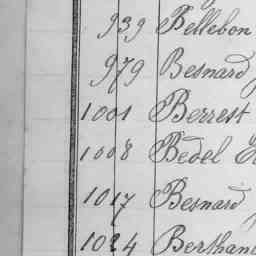 939 Bellebon
979 Besnard
1001 Berrest
1008 Bedel
1017 Besnard
1024